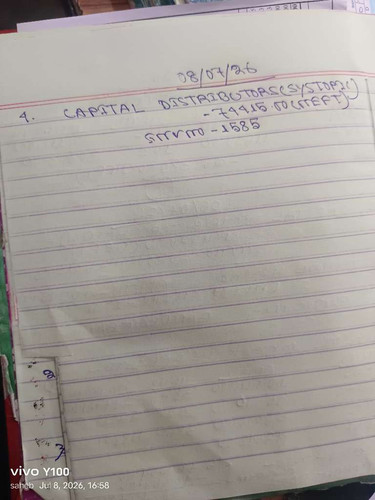 08/07/26
1. CAPITAL DISTRIBUTORS(SYSTOPIC)
- 74415.00(NEFT)
INVNO - 1585
vivo Y100
Jul 8, 2026, 16:58